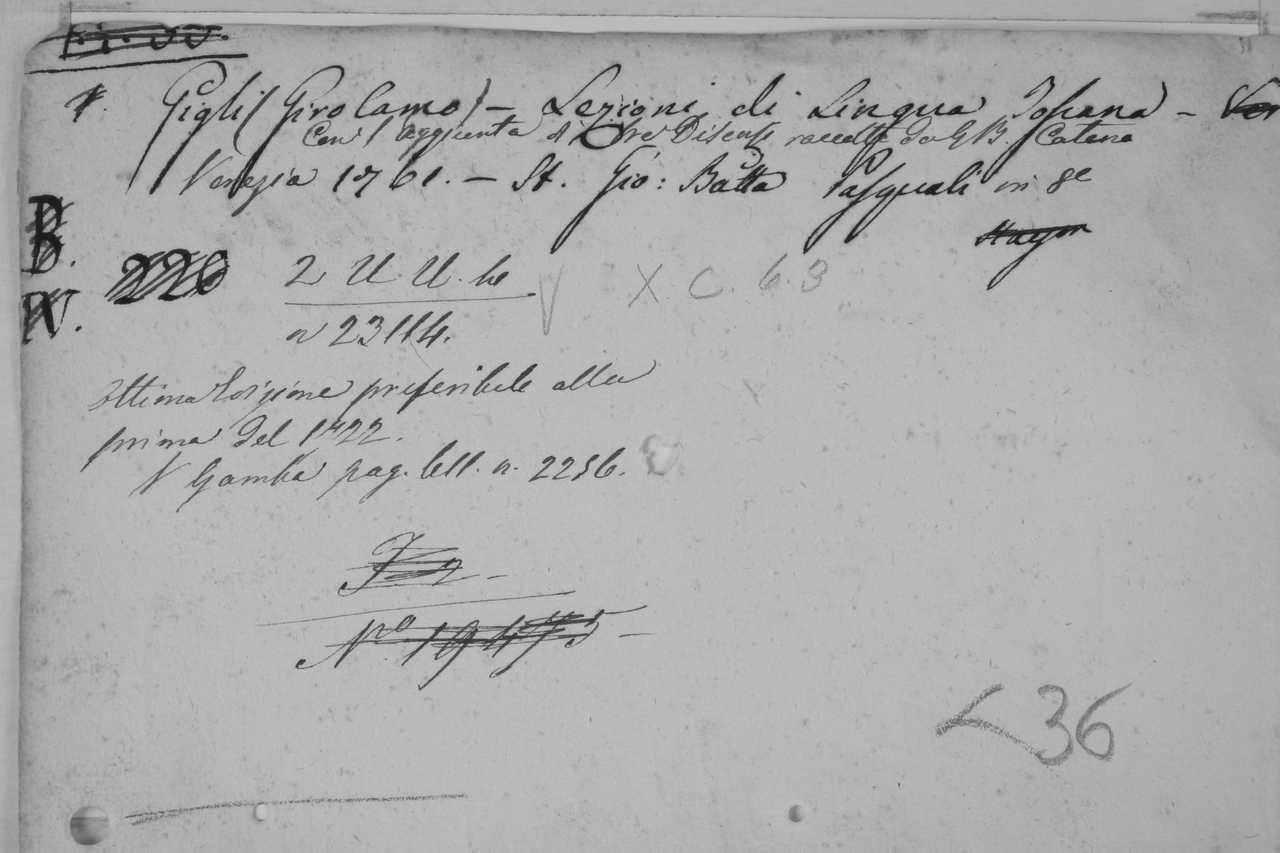 Gigli (Girolamo) – Lezioni di Lingua Toscana –
Con l'aggiunta di tre Discorsi raccolte da G. B. Catena
Venezia 1761. – St. Gio: Batta Pasquali in 8e
B.
220
2 U. U. be
X. C. 6. 3
N.
n 23114.
ottima Edizione preferibile alla
prima del 1722.
V Gamba pag. lett. n. 2256.
No. 19475 –
<36